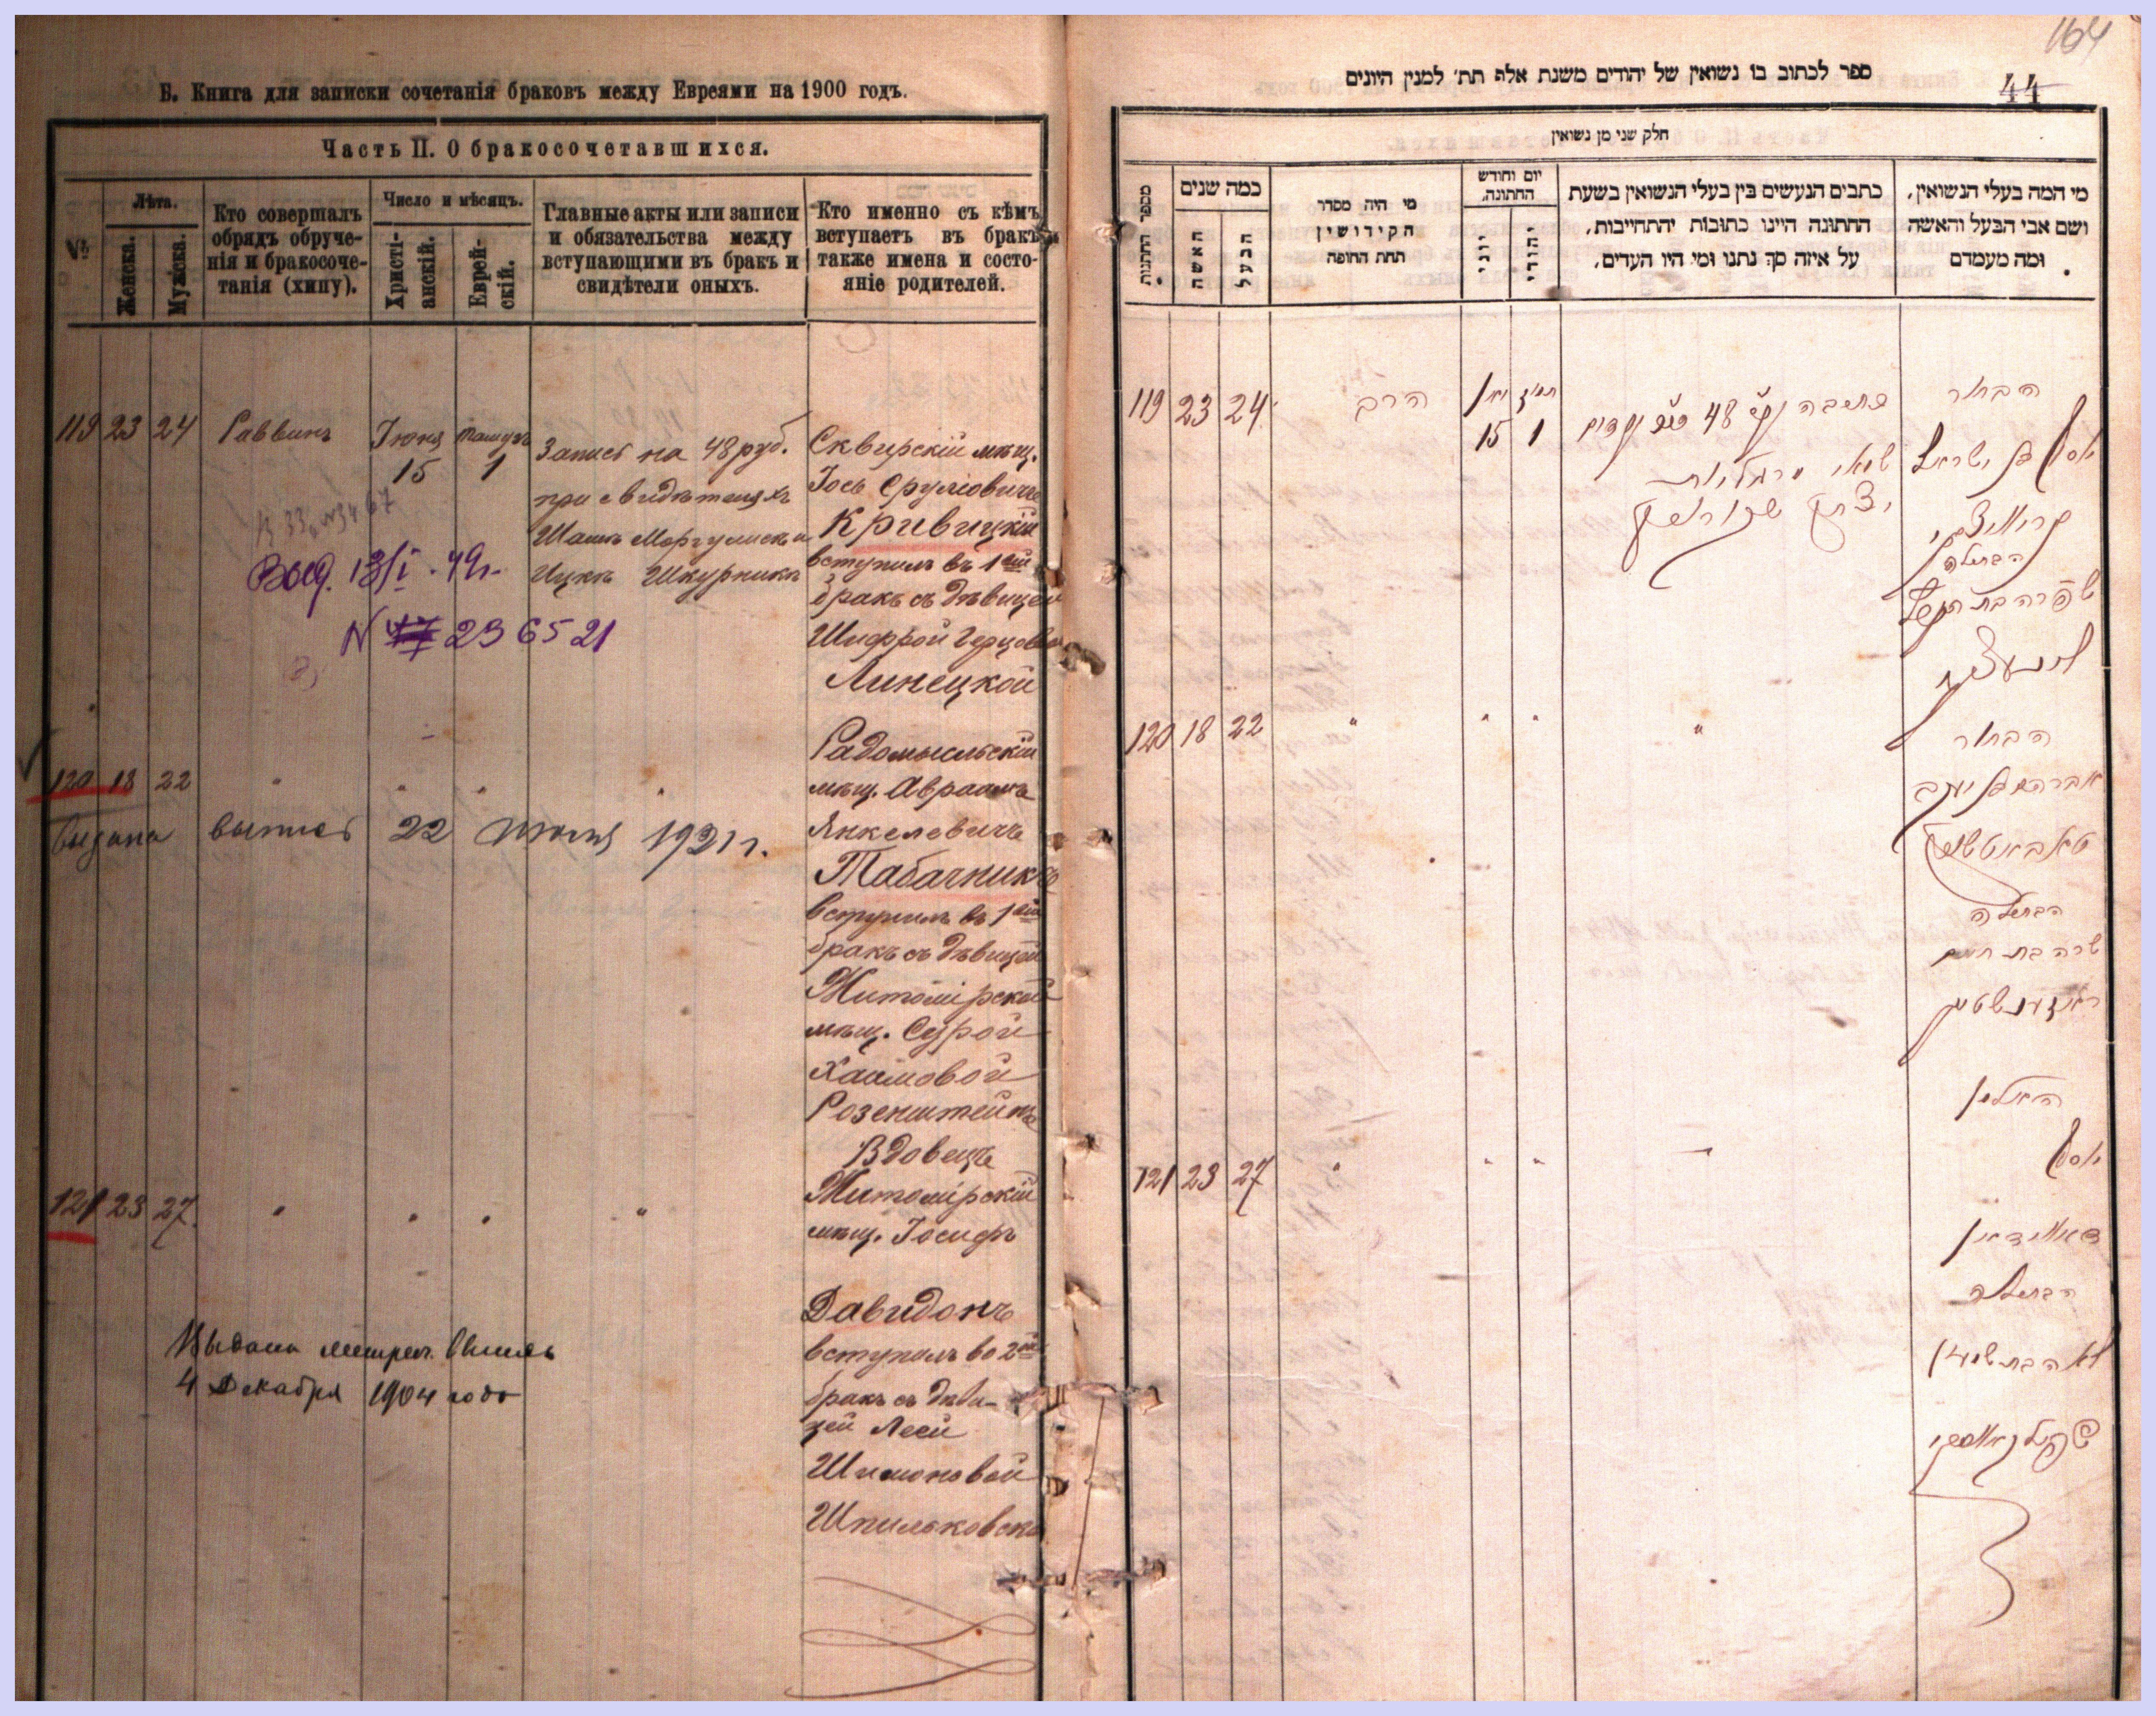 Б. Книга для записки сочетанія браковъ между Евреями на 1900 годъ.
Часть II. О бракосочетавшихся.
№
Лѣта.
Женска.
Мужска.
Кто совершалъ
обрядъ обруче-
нія и бракосоче-
танія (хипу).
Число и мѣсяцъ.
Христі-
анскій.
Еврей-
скій.
Главные акты или записи
и обязательства между
вступающими въ бракъ и
свидѣтели оныхъ.
Кто именно съ кѣмъ
вступаетъ въ бракъ
также имена и состо-
яніе родителей.
119 23 24 Раввинъ Іюня 15 Тамузъ 1
Запись на 48 руб.
при свидѣтеляхъ
Шашъ Моргулисъ и
Ицкъ Шкурникъ
Сквирскій мѣщ.
Іось Сруліовичъ
Кривицкій
вступилъ въ 1ый
бракъ съ дѣвицей
Шифрой Герцовой
Линецкой
Выд. 13/I - 49г.
N 236521
120 18 22 " " " "
Радомысльскій
мѣщ. Авраамъ
Янкелевичъ
Табачникъ
вступилъ въ 1ый
бракъ съ дѣвицей
Житомірской
мѣщ. Сурой
Хаимовой
Розенштейнъ
выдана выпись 22 июля 1921 г.
121 23 27. " " " "
Вдовецъ
Житомірскій
мѣщ. Іосифъ
Давидонъ
вступилъ во 2ой
бракъ съ дѣви-
цей Леей
Шимоновой
Шпильковска
Выдана метрич. выпись
4 Декабря 1904 года
164
44
ספר לכתוב בו נשואין של יהודים משנת אלף תת׳ למנין היונים
חלק שני מן נשואין
מספר החתנות
כמה שנים
האשה
הבעל
מי היה מסדר
הקידושין
תחת החופה
יום וחודש
החתונה.
יוני
יהודי
כתבים הנעשים בין בעלי הנשואין בשעת
החתונה היינו כתובות יהתחייבות,
על איזה סך נתנו ומי היו העדים.
מי המה בעלי הנשואין,
ושם אבי הבעל והאשה
ומה מעמדם
119 23 24 הרב 15 1
48
הבחור
יוסף בן ישראל
קריוויצקי
הבתולה
שפרה בת הערץ
לינעצקי
יצחק שקורניק
120 18 22 " " " "
הבחור
אברהם בן יעקב
טאבאטשניק
הבתולה
שרה בת חיים
ראזענשטיין
121 23 27 " " "
האלמן
יוסף
דאווידאן
הבתולה
לאה בת שמעון
שפילקאווסקי